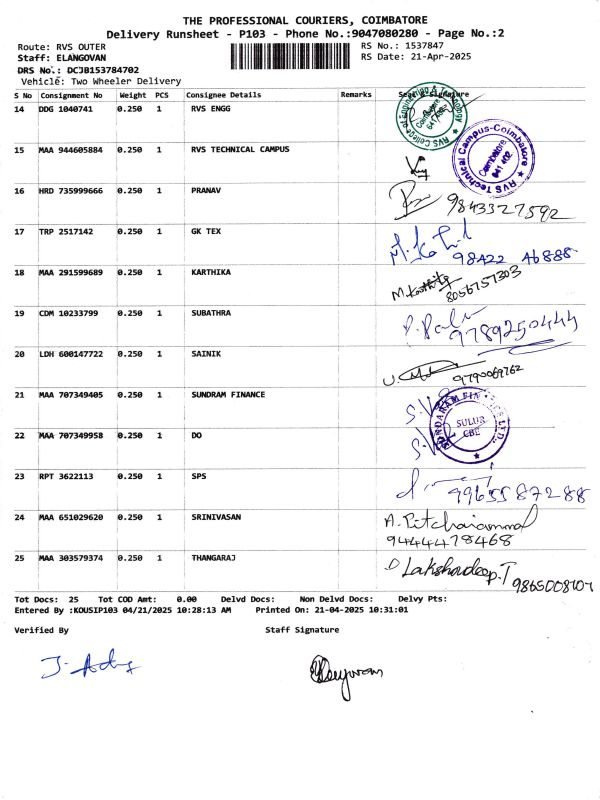 THE PROFESSIONAL COURIERS, COIMBATORE
Delivery Runsheet - P103 - Phone No.:9047080280 - Page No.:2
Route: RVS OUTER RS No.: 1537847
Staff: ELANGOVAN RS Date: 21-Apr-2025
DRS No.: DCJB153784702
Vehicle: Two Wheeler Delivery
S No Consignment No Weight PCS Consignee Details Remarks Seal & Signature
14 DDG 1040741 0.250 1 RVS ENGG
RVS College of Engineering & Technology Coimbatore 641 402
15 MAA 944605884 0.250 1 RVS TECHNICAL CAMPUS
RVS Technical Campus-Coimbatore Coimbatore 641 402
16 HRD 735999666 0.250 1 PRANAV
9843327592
17 TRP 2517142 0.250 1 GK TEX
98422 46888
18 MAA 291599689 0.250 1 KARTHIKA
M. Karthika
8056757303
19 CDM 10233799 0.250 1 SUBATHRA
9789250444
20 LDH 600147722 0.250 1 SAINIK
9790069762
21 MAA 707349405 0.250 1 SUNDRAM FINANCE
SULUR
CBE
22 MAA 707349958 0.250 1 DO
23 RPT 3622113 0.250 1 SPS
9965587288
24 MAA 651029620 0.250 1 SRINIVASAN
A. Pitchaiammal
9444478468
25 MAA 303579374 0.250 1 THANGARAJ
Lakshadeep.T
Tot Docs: 25 Tot COD Amt: 0.00 Delvd Docs: Non Delvd Docs: Delvy Pts:
Entered By :KOUSIP103 04/21/2025 10:28:13 AM Printed On: 21-04-2025 10:31:01
Verified By Staff Signature